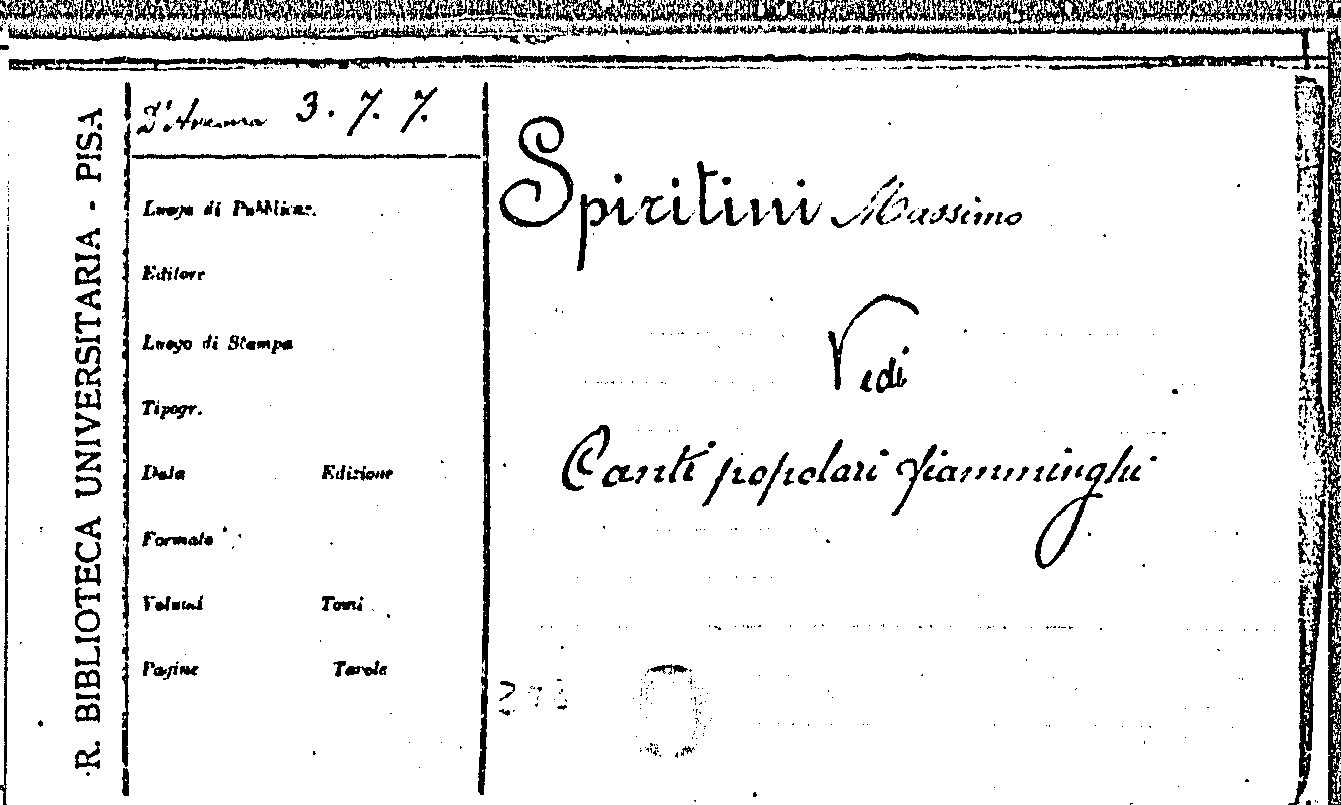 R. BIBLIOTECA UNIVERSITARIA - PISA
D'Ancona 3. 7. 7.
Luogo di Pubblicaz.
Editore
Luogo di Stampa
Tipogr.
Data Edizione
Formato
Volumi Tomi
Pagine Tavole
Spiritini Massimo
Vedi
Canti popolari fiamminghi